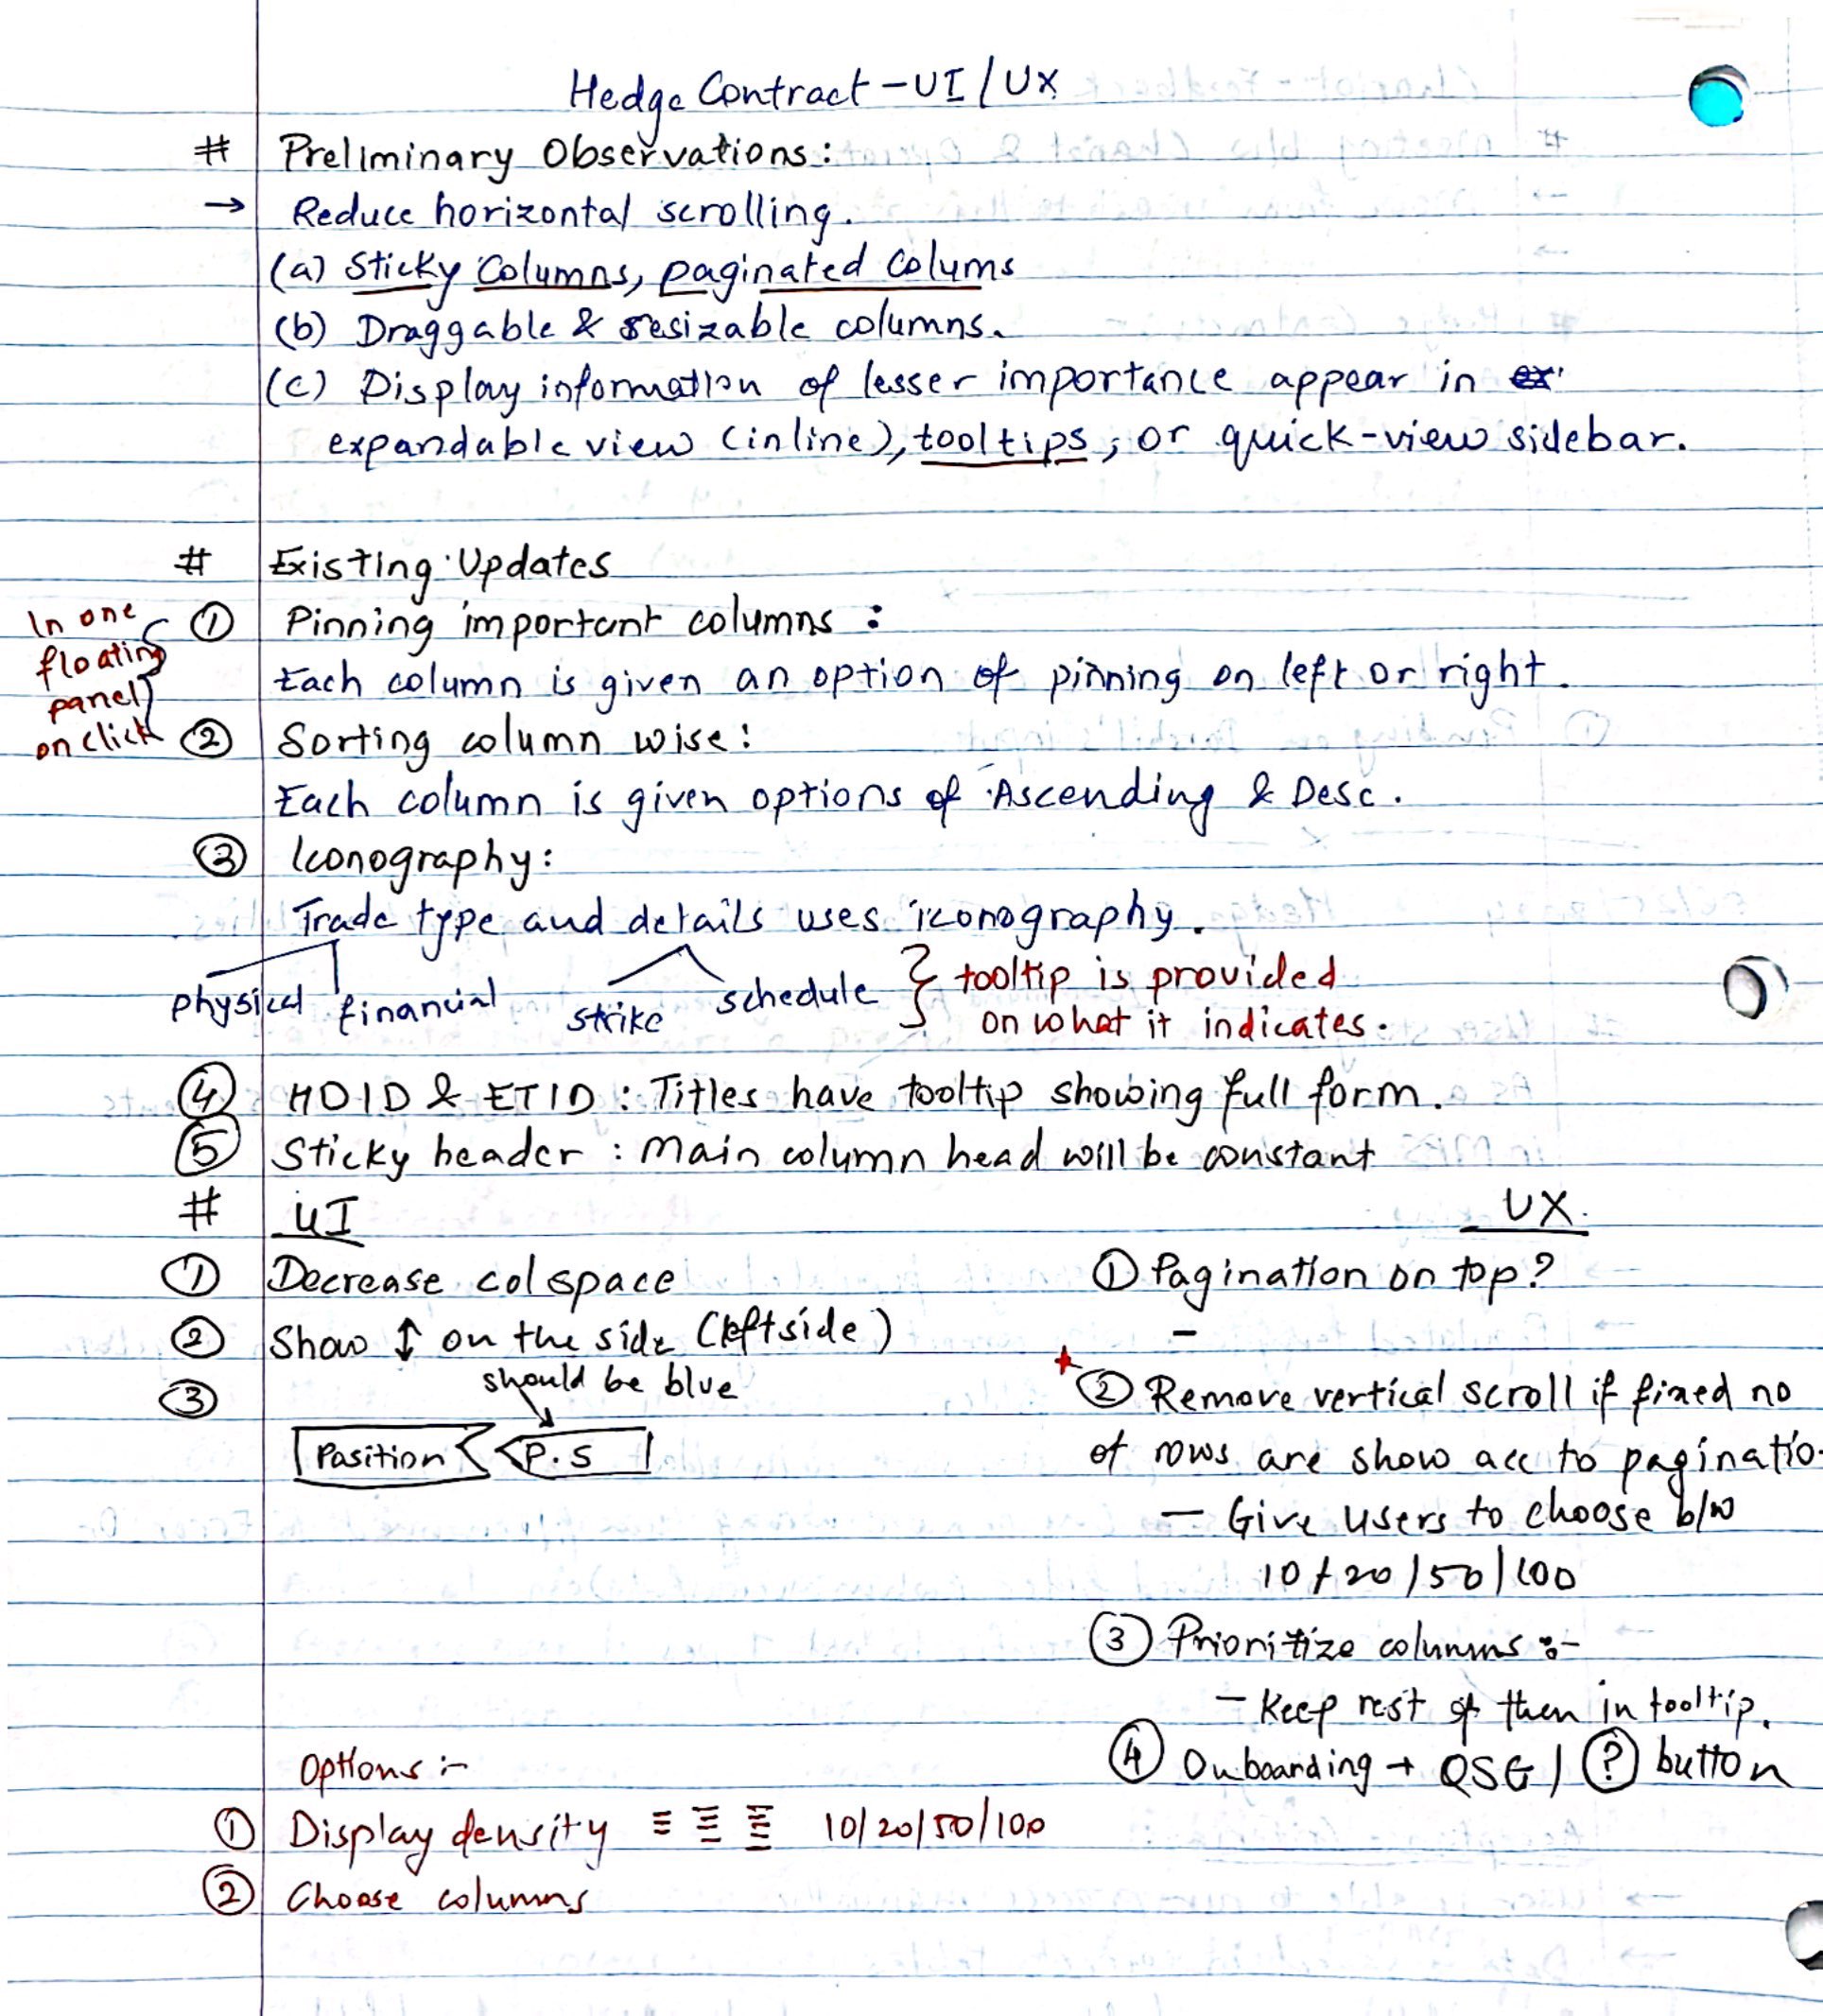 Hedge Contract - UI / UX
# Preliminary Observations:
→ Reduce horizontal scrolling.
(a) Sticky Columns, paginated Colums
(b) Draggable & resizable columns.
(c) Display information of lesser importance appear in
expandable view (inline), tooltips, or quick-view sidebar.
# Existing Updates
In one
floating
panel
on click
① Pinning important columns :
Each column is given an option of pinning on left or right.
② Sorting column wise:
Each column is given options of Ascending & Desc.
③ Iconography:
Trade type and details uses iconography.
physical financial strike schedule } tooltip is provided
on what it indicates.
④ HDID & ETID : Titles have tooltip showing full form.
⑤ Sticky header : Main column head will be constant
# UI
① Decrease col space
② Show ↕ on the side (leftside)
③ should be blue
Position P.S
UX.
① Pagination on top?
-
+ ② Remove vertical scroll if fixed no
of rows are show acc to paginatio.
- Give users to choose b/w
10/20/50/100
③ Prioritize columns :-
- Keep rest of then in tooltip.
④ Onboarding → QSG / ? button
Options :-
① Display density 10/20/50/100
② Choose columns